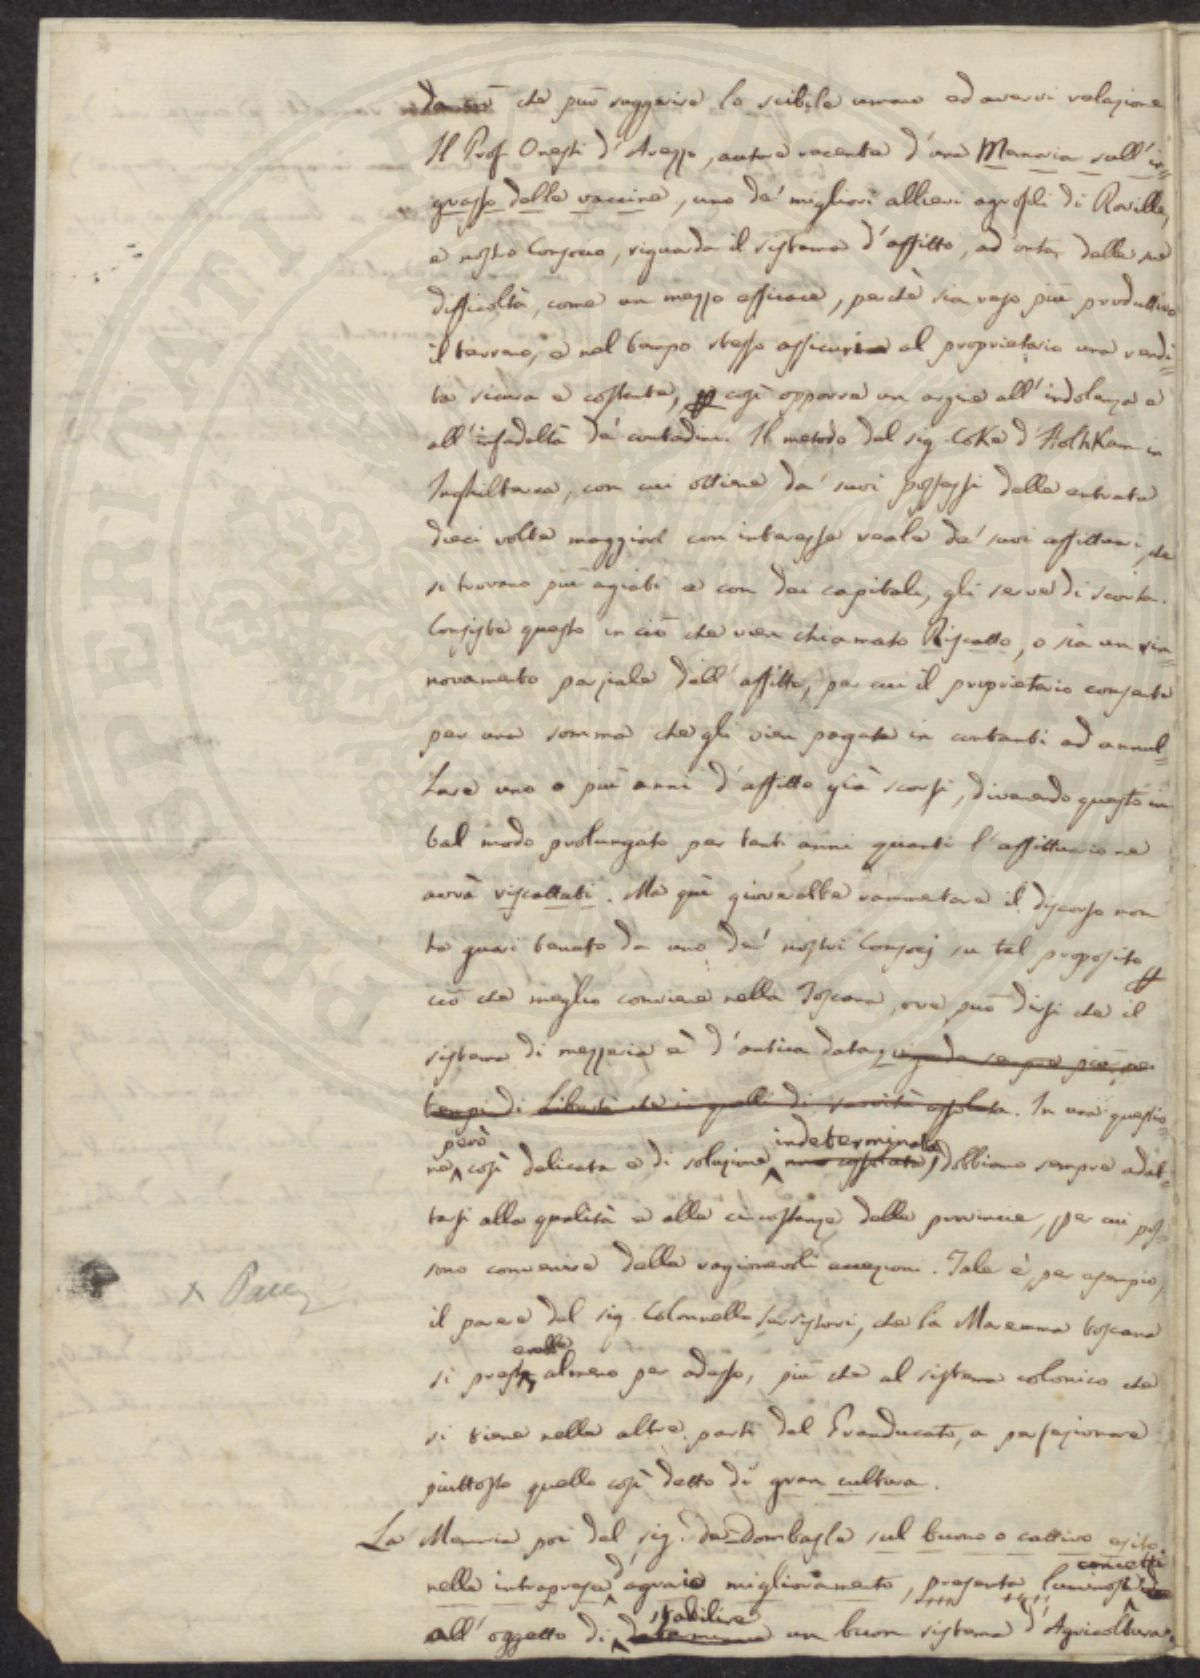 da ciò che può suggerire lo scibile umano ed avervi relazione
Il Prof. Onesti d'Arezzo, autore recente d'una Memoria sull'in=
grasso delle vaccine, uno de' migliori allievi agrofili di Roville,
e nostro Consocio, riguarda il sistema d'affitto, ad onta, delle sue
difficoltà, come un mezzo efficace, perchè sia reso più produttivo
il terreno, e nel tempo stesso assicurare al proprietario una rendi=
ta sicura e costante, e così opporre un argine all'indolenza e
all'infedeltà de' contadini. Il metodo del sig. Coke d'Holhkam in
Inghilterra, con cui ottiene da' suoi possessi delle entrate
dieci volte maggiori con interesse reale de' suoi affittuari, che
si trovano più agiati e con dei capitali, gli serve di scorta.
Consiste questo in ciò che vien chiamato Riscatto, o sia un rin=
novamento parziale dell'affitto, per cui il proprietario consente
per una somma che gli vien pagata in contanti ad annul=
lare uno o più anni d'affitto già scorsi, divenendo questo in
tal modo prolungato per tanti anni quanti l'affittuario ne
avrà riscattati. Ma quì gioverebbe rammentare il discorso non
ha guari tenuto da uno de' nostri Consocj su tal proposito
ciò che meglio conviene nella Toscana, ove può dirsi che il
sistema di mezzeria è d'antica data, vigendo sempre più ne'
tempi di libertà che in quelli di servitù assoluta. In una questio=
però indeterminata
ne così delicata e di soluzione non assoluta, dobbiamo sempre adat=
tarsi alla qualità e alle circostanze delle provincie, per cui pos=
sono convenire delle ragionevoli eccezioni. Tale è, per esempio,
x Pacci
il parere del sig. Colonnello Sersistori, che la Maremma toscana
si presti almeno per adesso, più che al sistema colonico che
si tiene nelle altre parti del Granducato, a perfezionare
piuttosto quello così detto di gran cultura.
La Memoria poi del sig. de-Dombasle sul buono o cattivo esito
concetti
nelle intraprese d'agrario miglioramento, presenta luminosi
stabilire
all'oggetto di determinare un buon sistema d'Agricoltura